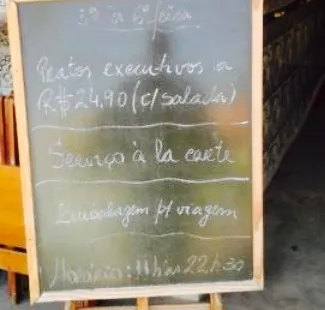 2ª à 6ª feira
Pratos executivos a
R$24.90 (c/ salada)
Serviço à la carte
Embalagem p/ viagem
Horário: 11h às 22h30